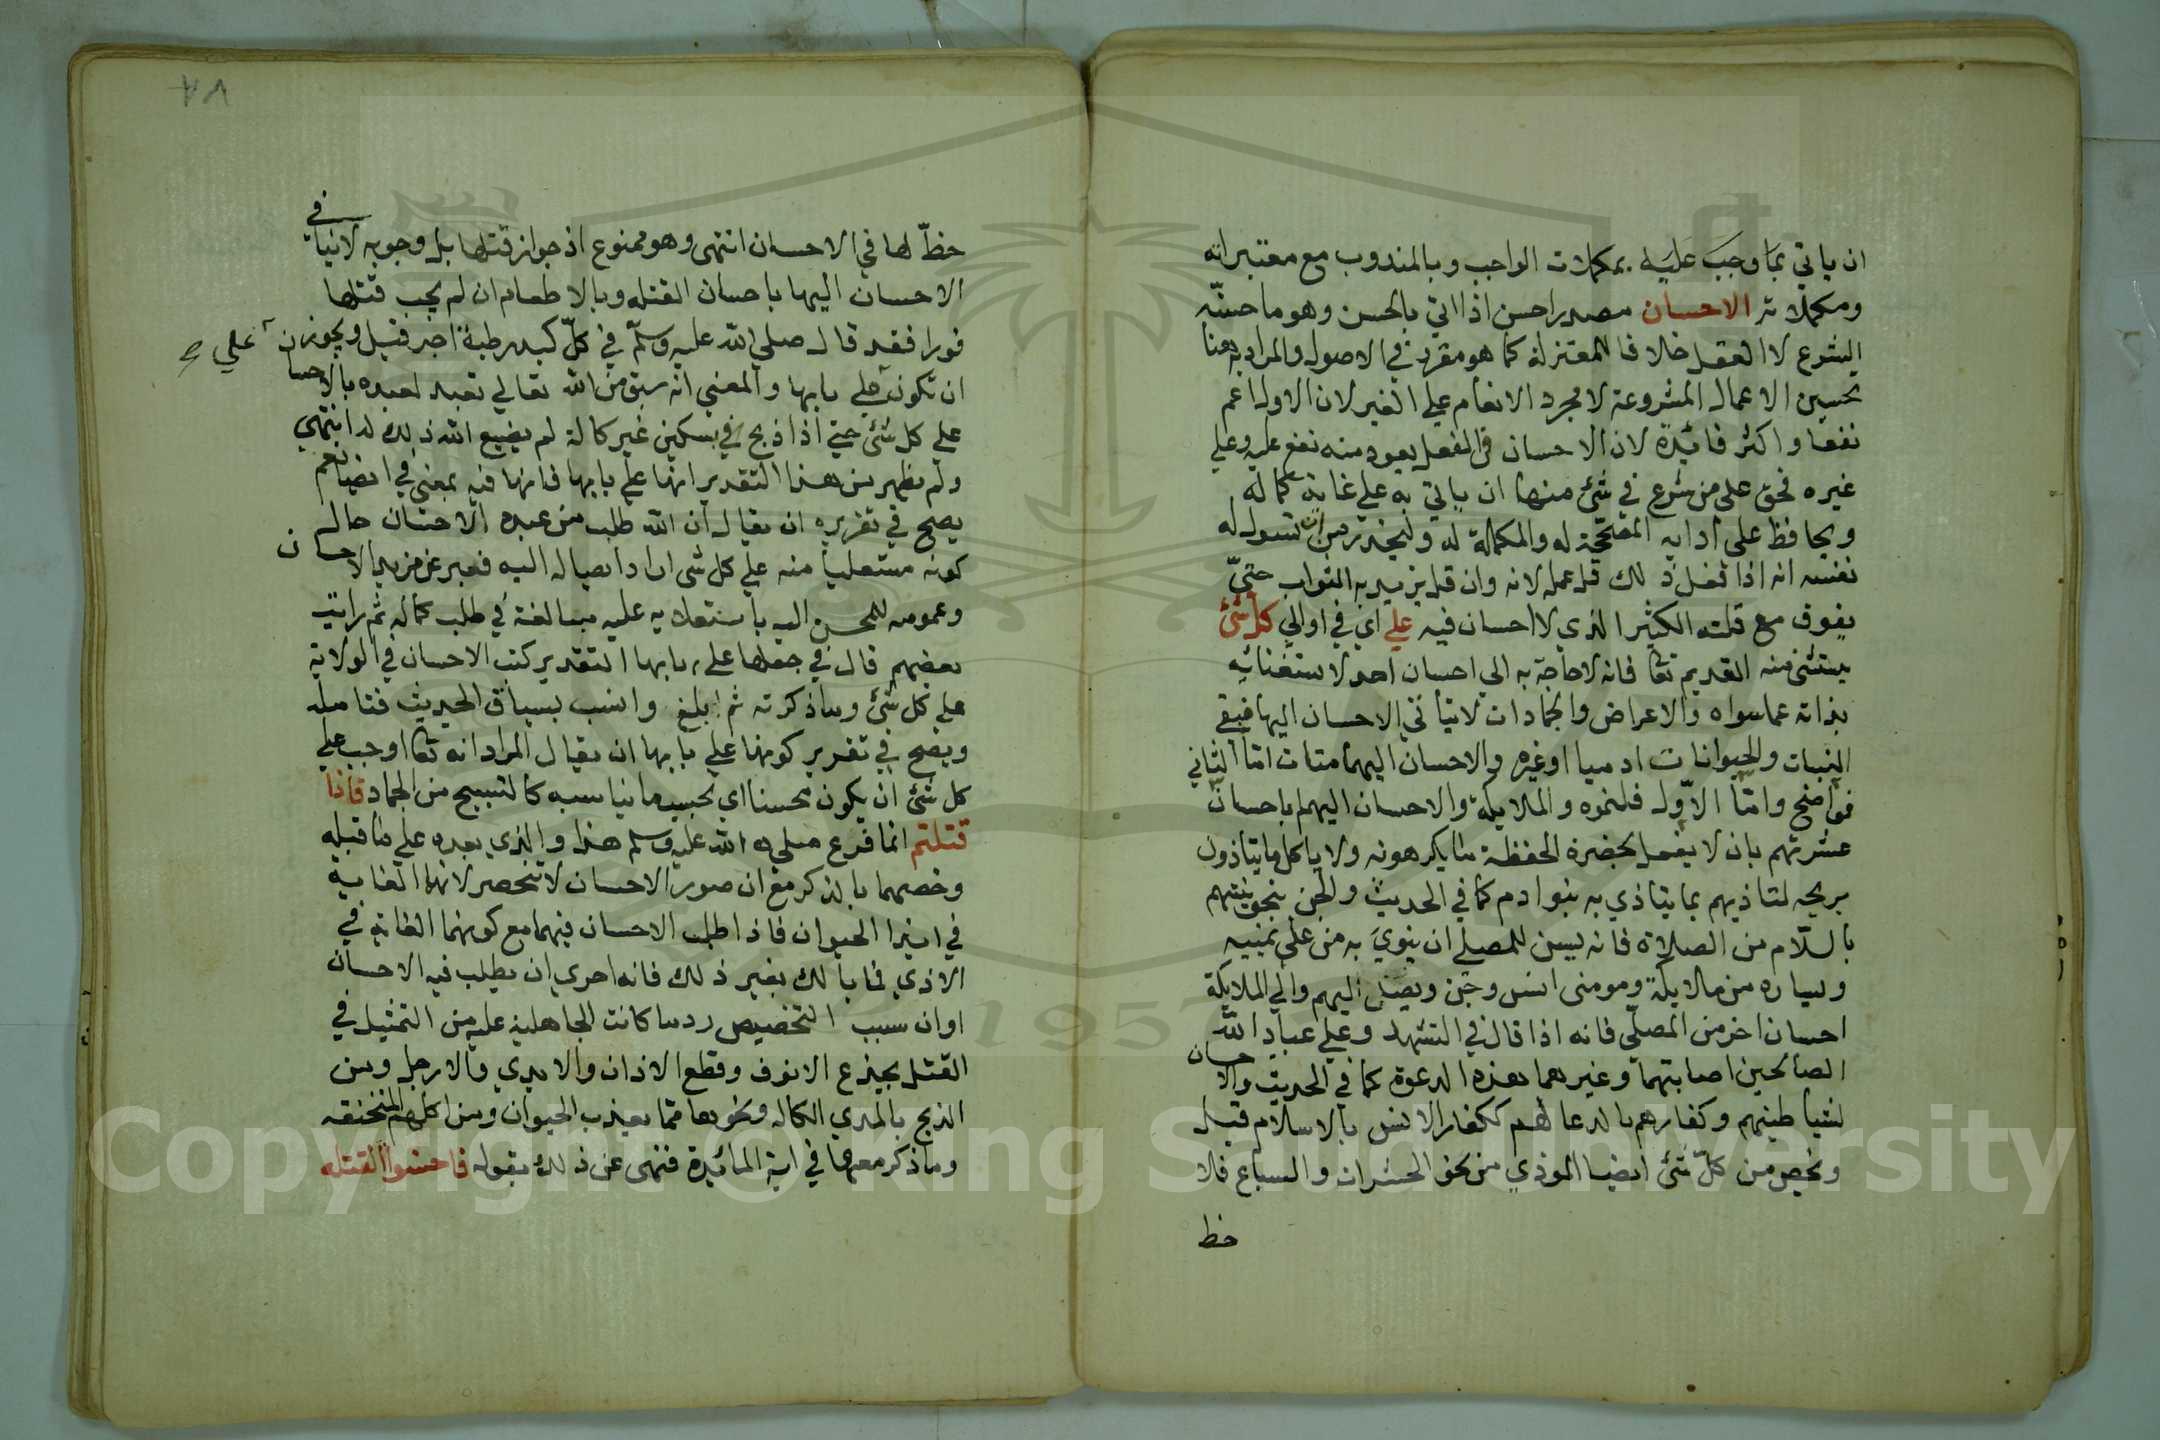 ان ياتي بما وجب عليه بمكملات الواجب وبالمندوب مع معتبراته
ومكملاته الاحسان مصدر احسن اذا اتي بالحسن وهو ما حسنه
الشرع لا العقل خلافا للمعتزلة كما هو مقرر في الاصول والمراد به هنا
تحسين الاعمال المشروعة لا مجرد الانعام علي الغير لان الاول اعم
نفعا واكثر فائدة لان الاحسان في الفعل يعود منه نفع عليه وعلي
غيره فحق على من شرع في شئ منها ان ياتي به علي غاية كماله
ويحافظ على ادابه المصححة له والمكملة له وليحذر من ان تسول له
نفسه انه اذا فعل ذلك قل عمله لانه وان قل يزيد به الثواب حتيّ
يفوق مع قلته الكثير الذي لا احسان فيه علي اي في او الي كل شئ
يستثني منه القديم تعا فانه لا حاجة به الي احسان احد لاستغنائه
بذاته عما سواه والاعراض والجمادات لا يتاتي الاحسان اليها فبقي
النبات والحيوانات ادميا او غيره والاحسان اليهما متات امّا الثاني
فواضح وامّا الاوّل فلنموه والملايكة والاحسان اليهم باحسان
عشرتهم بان لا يفعل بحضرة الحفظة ما يكرهونه ولا ياكل ما يتاذون
بريحه لتاذيهم بما يتاذي به بنوا دم كما في الحديث والجن بنحو نيتهم
بالسّلام من الصلاة فانه يسن للمصلي ان ينوي به من علي يمينه
ويساره من ملايكة ومومني انس وجن ويصل اليهم والي الملايكة
احسان اخر من المصلّي فانه اذا قال في التشهد وعلي عباد اللّه
الصالحين اصابتهما وغيرهما هذه الدعوة كما في الحديث والاحسان
لشياطينهم وكفارهم بالدعا لهم ككفار الانس بالاسلام قيل
ويخص من كلّ شئ ايضا الموذي من نحو الحشرات والسباع فلا
حظ
٧٨
حظّ لها في الاحسان انتهى وهو ممنوع اذ جواز قتلها بل وجوبه لا ينافي
الاحسان اليها باحسان القتله وبالاطعام ان لم يجب قتلها
فورا فقد قال صلي الله عليه وسلّم في كلّ كبد رطبة اجر قيل ويجوز
ان تكون علي بابها والمعني انه سبق من الله تعالي تعبد لعبده بالاحسان
علي كل شئ حتي اذا ذبح في بسكين غير كالة لم يضيع الله ذلك له انتهي
ولم يظهر من هذا التقدير انها علي بابها فانها فيه بمعني في ايضا نعم
يصح في تقريره ان يقال ان الله طلب من عبده الاحسان حال
كونه مستعليا منه علي كل شئ اراد ايصاله اليه فعبر عن مزيد الاحسان
وعمومه للمحسن اليه باستعلايه عليه مبالغة في طلب كماله ثم رايت
بعضهم قال في جعلها علي بابها التقدير كتب الاحسان في الولاية
علي كل شئ وما ذكرته ثم ابلغ وانسب بسياق الحديث فتامله
ويصح في تقدير كونها علي بابها ان يقال المراد انه تعا اوجب علي
كل شئ ان يكون محسنا اي بحسب ما يناسبه كالتسبيح من الجماد فاذا
قتلتم انما فرع صلي الله عليه وسلم هذا والذي بعده علي ما قبله
وخصهما بالذكر مع ان صور الاحسان لا تنحصر لانهما الغاية
في ايذا الحيوان فاذا طلب الاحسان فيهما مع كونهما الغاية في
الاذي فما بالك بغير ذلك فانه احري ان يطلب فيه الاحسان
او ان سبب التخصيص رد ما كانت الجاهلية عليه من التمثيل في
القتل بجذع الانوف وقطع الاذان والايدي والارجل ومن
الذبح بالمدي الكالة ونحوها مما يعذب الحيوان ومن اكلهم المنخنقه
وما ذكر معها في اية المائدة فنهى عن ذلك بقوله فاحسنوا القتله
Copyright © King Saud University
1957